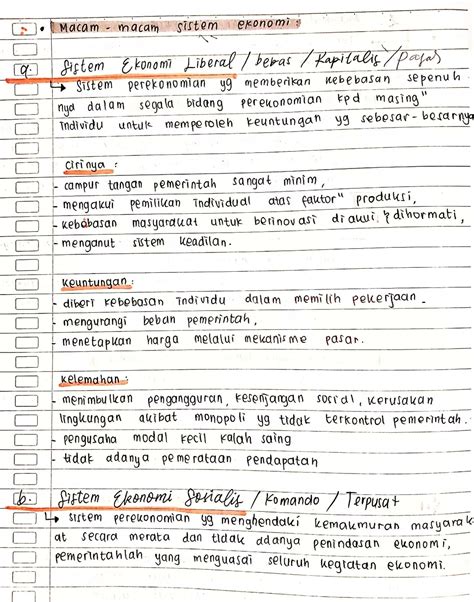 Macam - macam sistem ekonomi :
a. Sistem Ekonomi Liberal / bebas / Kapitalis / pasar
↳ Sistem perekonomian yg memberikan kebebasan sepenuh
nya dalam segala bidang perekonomian kpd masing"
individu untuk memperoleh keuntungan yg sebesar-besarnya
Cirinya :
- campur tangan pemerintah sangat minim,
- mengakui pemilikan individual atas faktor" produksi,
- kebebasan masyarakat untuk berinovasi diakui & dihormati,
- menganut sistem keadilan.
Keuntungan :
- diberi kebebasan individu dalam memilih pekerjaan.
- mengurangi beban pemerintah,
- menetapkan harga melalui mekanisme pasar.
Kelemahan :
- menimbulkan pengangguran, kesenjangan sosial, kerusakan
lingkungan akibat monopoli yg tidak terkontrol pemerintah.
- pengusaha modal kecil kalah saing
- tidak adanya pemerataan pendapatan
b. Sistem Ekonomi Sosialis / Komando / Terpusat
↳ sistem perekonomian yg menghendaki kemakmuran masyarak
at secara merata dan tidak adanya penindasan ekonomi,
pemerintahlah yang menguasai seluruh kegiatan ekonomi.